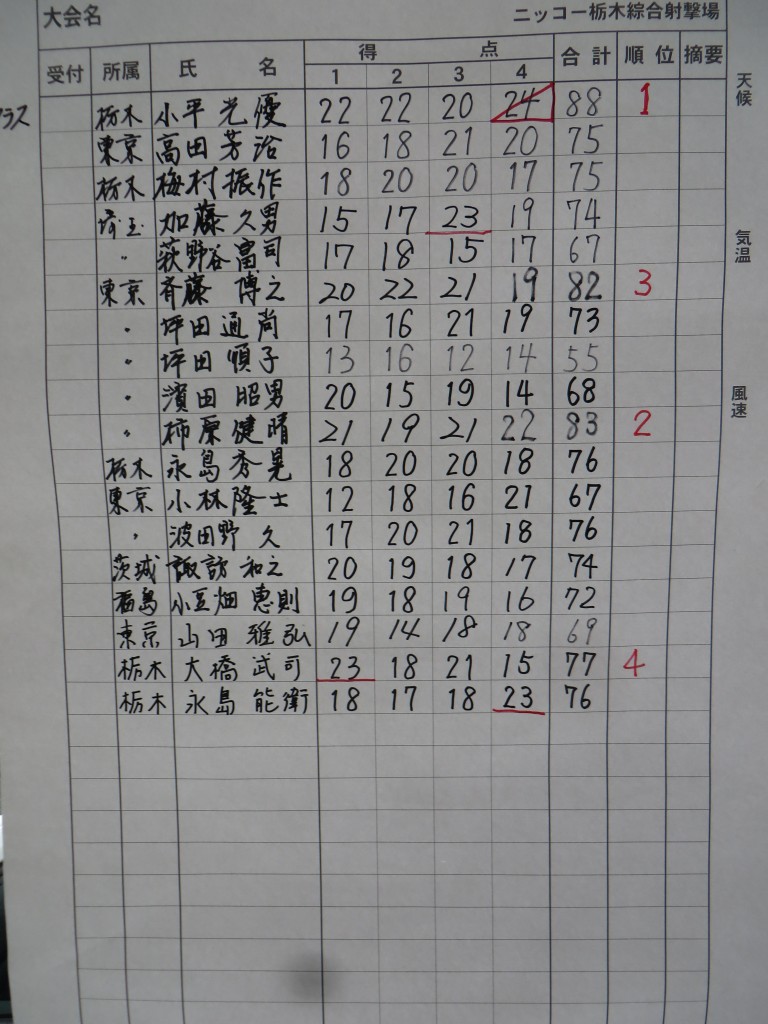 大会名 ニッコー栃木綜合射撃場
受付 所属 氏 名 得 点 合計 順位 摘要
1 2 3 4
天候
気温
風速
ラス
栃木 小平光優 22 22 20 24 88 1
東京 高田芳治 16 18 21 20 75
栃木 梅村振作 18 20 20 17 75
埼玉 加藤久男 15 17 23 19 74
〃 荻野谷富司 17 18 15 17 67
東京 斉藤博之 20 22 21 19 82 3
〃 坪田通尚 17 16 21 19 73
〃 坪田順子 13 16 12 14 55
〃 濱田昭男 20 15 19 14 68
〃 柿原健晴 21 19 21 22 83 2
栃木 永島秀晃 18 20 20 18 76
東京 小林隆士 12 18 16 21 67
〃 波田野久 17 20 21 18 76
茨城 諏訪和之 20 19 18 17 74
福島 小豆畑恵則 19 18 19 16 72
東京 山田雅弘 19 14 18 18 69
栃木 大橋武司 23 18 21 15 77 4
栃木 永島能衛 18 17 18 23 76